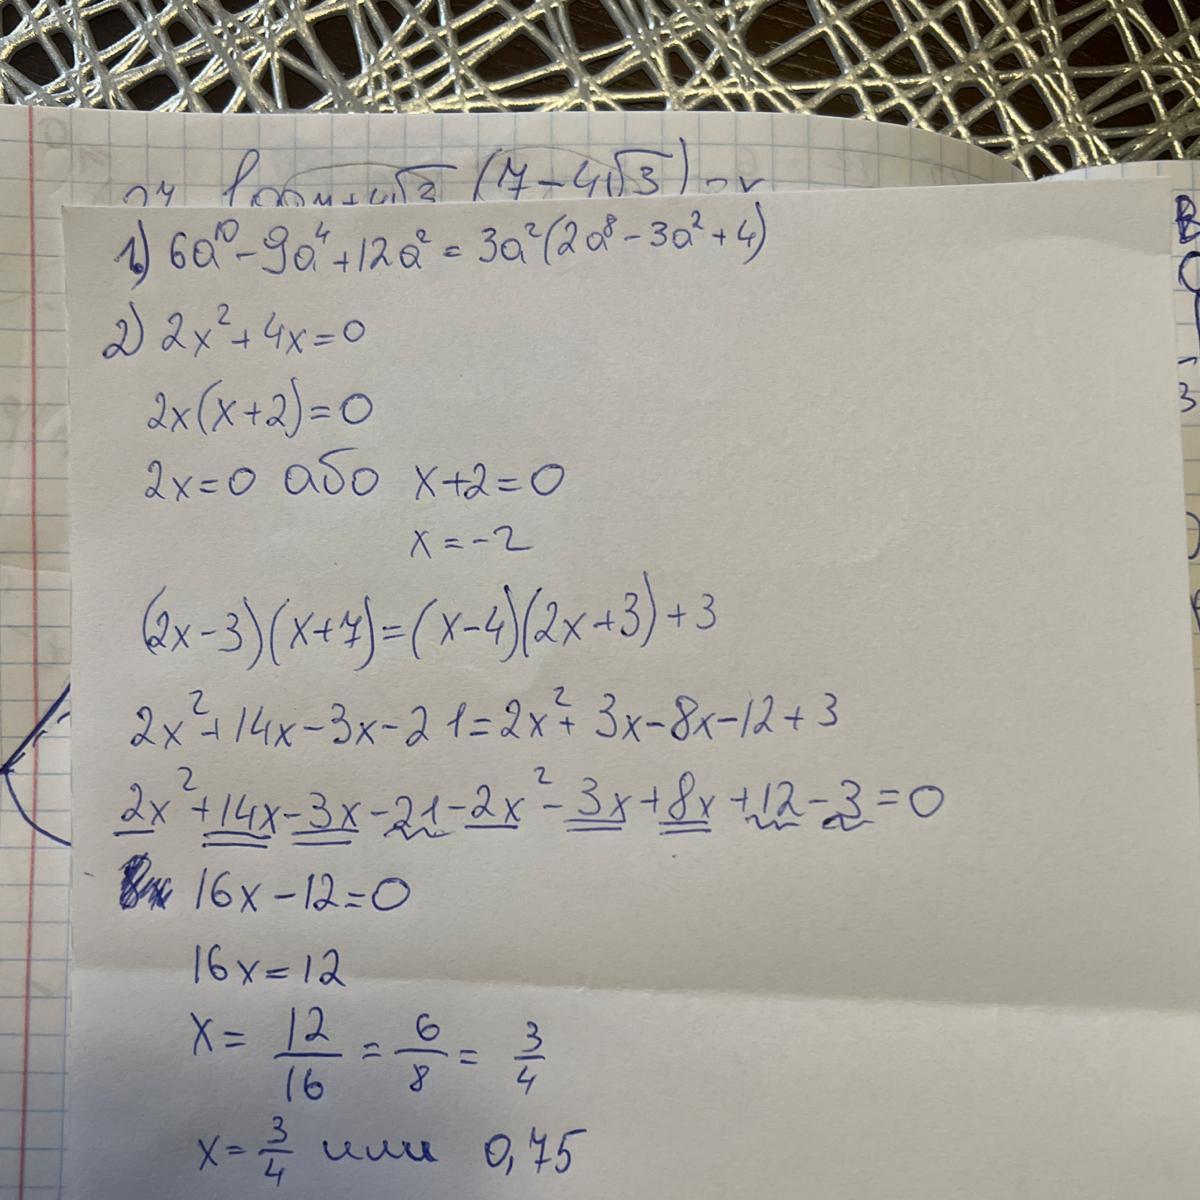 (7-4√3)
1) 6a¹⁰-9a⁴+12a²=3a²(2a⁸-3a²+4)
2) 2x²+4x=0
2x(x+2)=0
2x=0 або x+2=0
x=-2
(2x-3)(x+7)=(x-4)(2x+3)+3
2x²+14x-3x-21=2x²+3x-8x-12+3
2x²+14x-3x-21-2x²-3x+8x+12-3=0
16x-12=0
16x=12
x=12/16=6/8=3/4
x=3/4 или 0,75